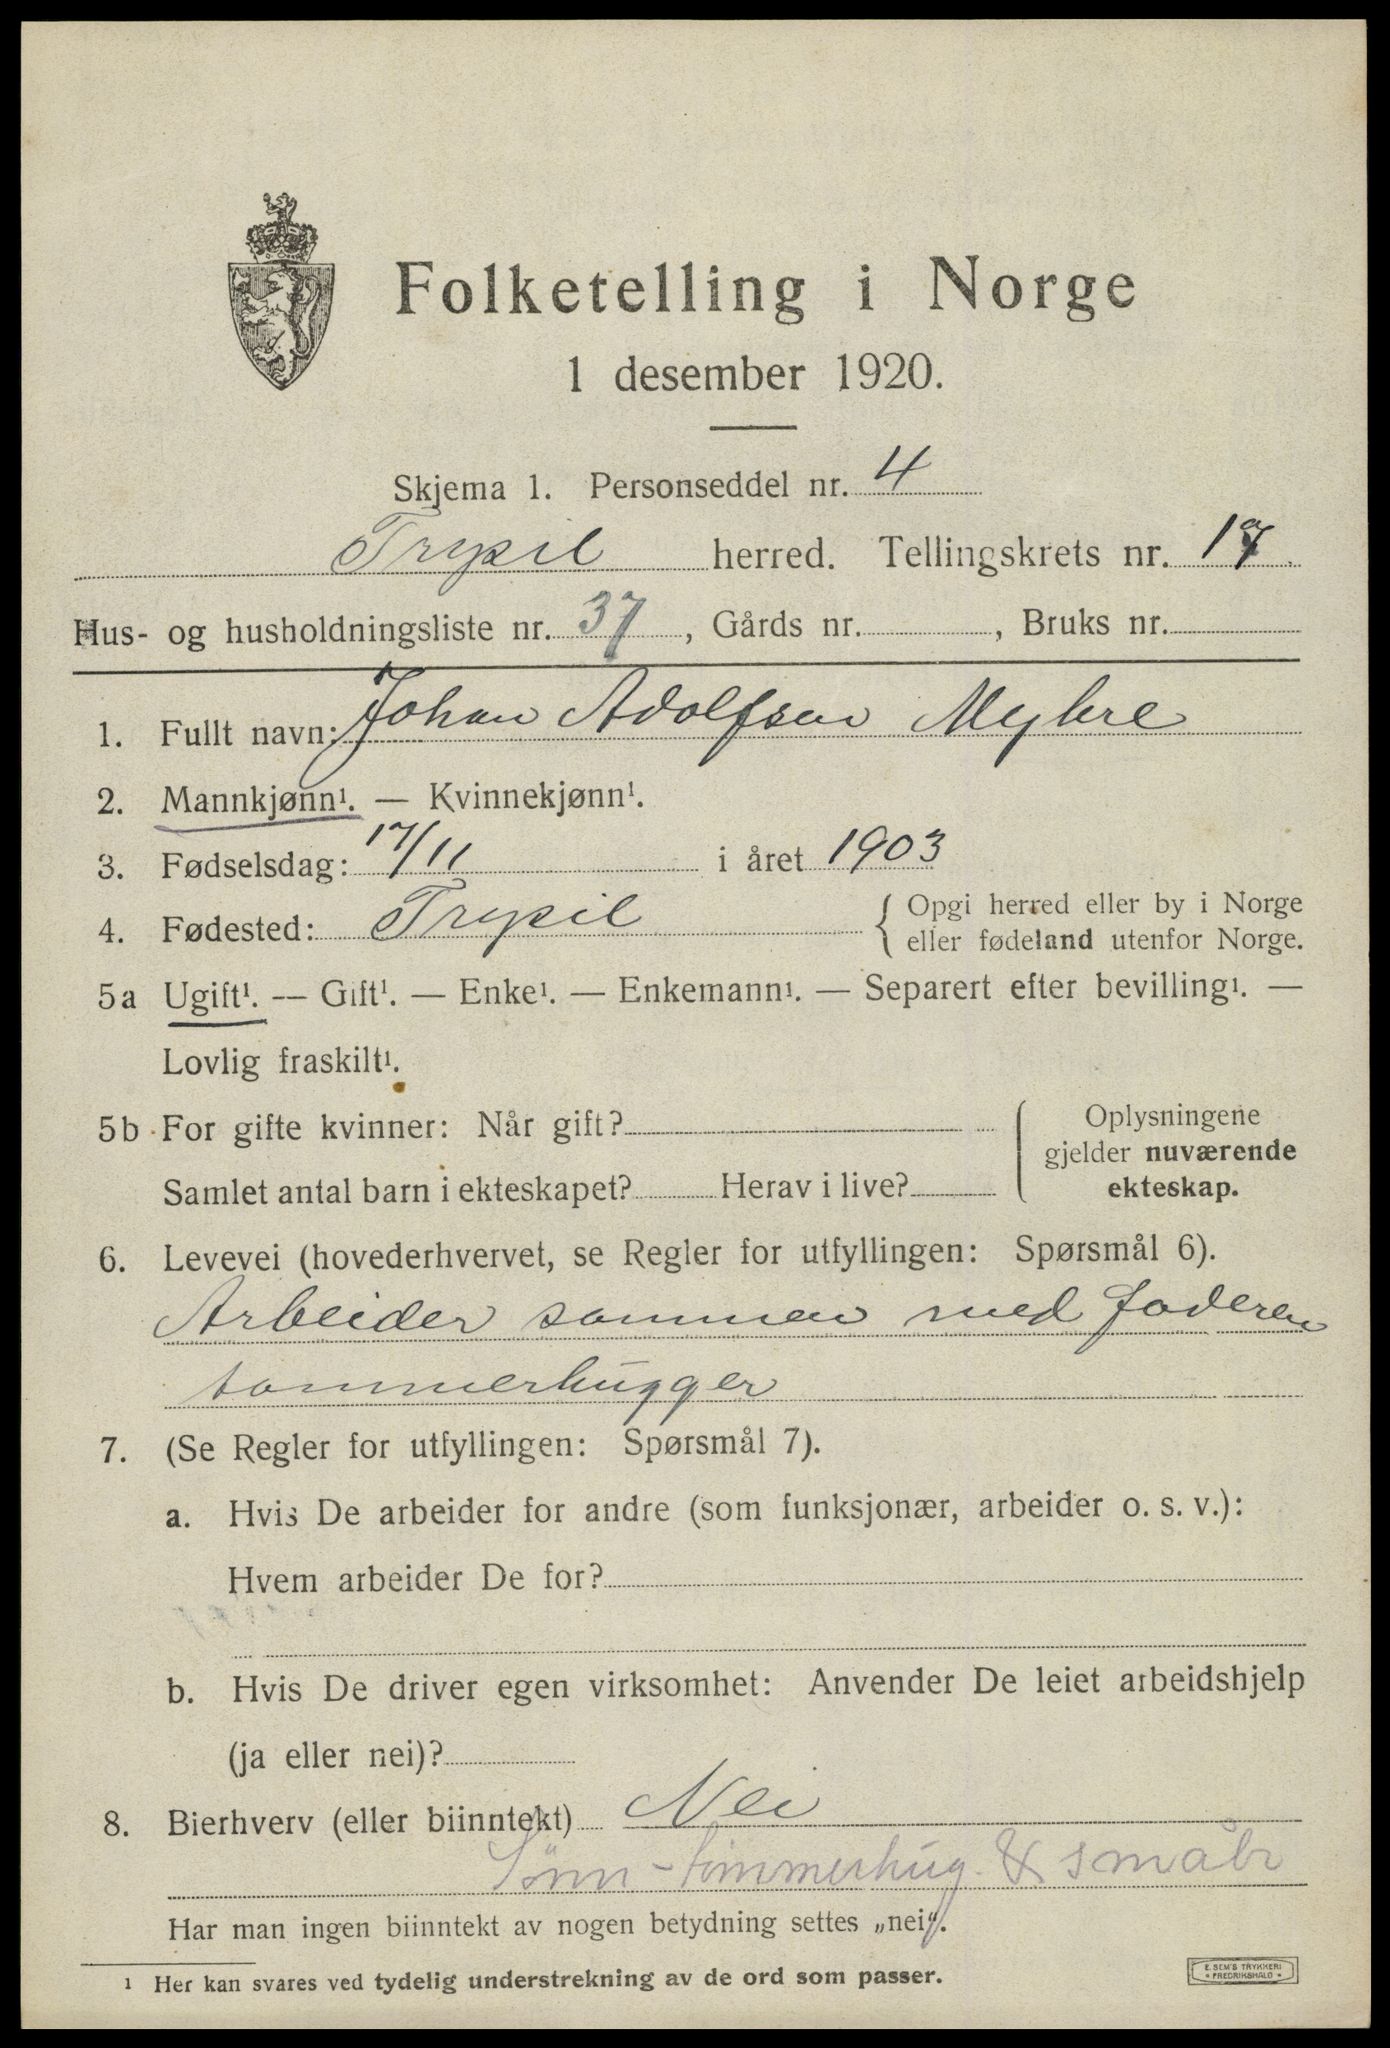 Folketelling i Norge
1 desember 1920.
Skjema 1. Personseddel nr. 4
Trysil herred. Tellingskrets nr. 17.
Hus- og husholdningsliste nr. 37, Gårds nr. , Bruks nr.
1. Fullt navn: Johan Adolfsen Myhre
2. Mannkjønn¹. — Kvinnekjønn¹.
3. Fødselsdag: 17/11 i året 1903
4. Fødested: Trysil { Opgi herred eller by i Norge
eller fødeland utenfor Norge.
5a Ugift¹. — Gift¹. — Enke¹. — Enkemann¹. — Separert efter bevilling¹. —
Lovlig fraskilt¹.
5b For gifte kvinner: Når gift? Oplysningene
gjelder nuværende
Samlet antal barn i ekteskapet? Herav i live? ekteskap.
6. Levevei (hovederhvervet, se Regler for utfyllingen: Spørsmål 6).
Arbeider sammen med faderen
tommerhugger
7. (Se Regler for utfyllingen: Spørsmål 7).
a. Hvis De arbeider for andre (som funksjonær, arbeider o. s. v.):
Hvem arbeider De for?
b. Hvis De driver egen virksomhet: Anvender De leiet arbeidshjelp
(ja eller nei)?
8. Bierhverv (eller biinntekt) Nei
Sønn - tømmerhug. & småbr
Har man ingen biinntekt av nogen betydning settes „nei“.
¹ Her kan svares ved tydelig understrekning av de ord som passer.
E. SEM'S TRYKKERI
• FREDRIKSHALD •